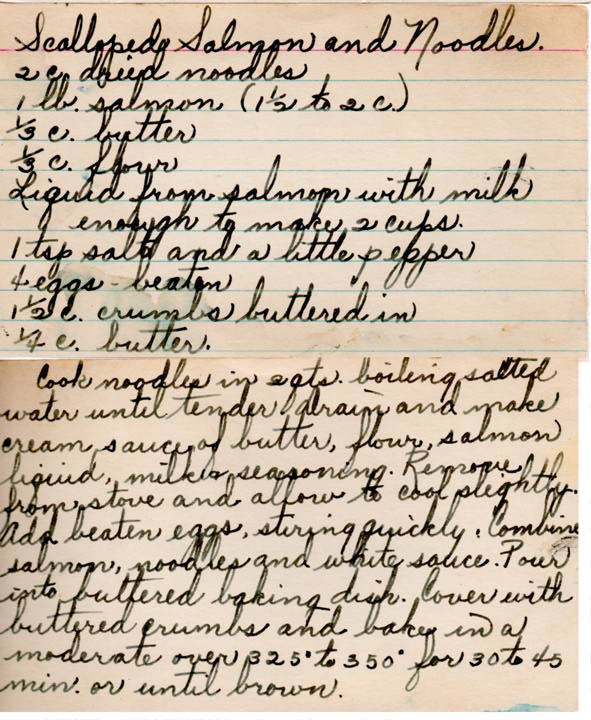 Scalloped Salmon and Noodles.
2 c. dried noodles
1 lb. salmon (1½ to 2 c.)
⅓ c. butter
⅓ c. flour
Liquid from salmon with milk
enough to make 2 cups.
1 tsp salt and a little pepper
4 eggs - beaten
1½ c. crumbs buttered in
¼ c. butter.
Cook noodles in 2 qts. boiling salted
water until tender, drain and make
cream sauce of butter, flour, salmon
liquid, milk & seasoning. Remove
from stove and allow to cool slightly.
Add beaten eggs, stiring quickly. Combine
salmon, noodles and white sauce. Pour
into buttered baking dish. Cover with
buttered crumbs and bake in a
moderate oven 325° to 350° for 30 to 45
min. or until brown.